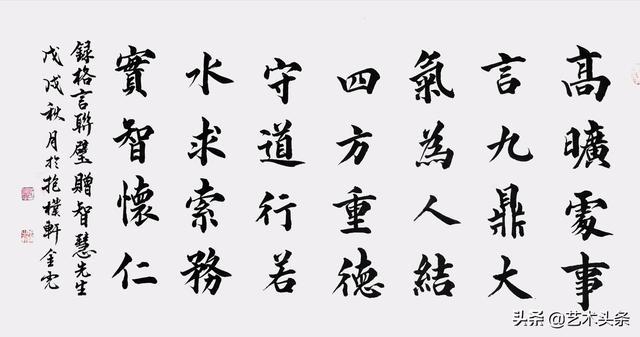 高曠處事
言九鼎大
氣為人結
四方重德
守道行若
水求索務
實智懷仁
録格言聯璧贈智慧先生
戊戌秋月於抱樸軒金
头条@艺术头条